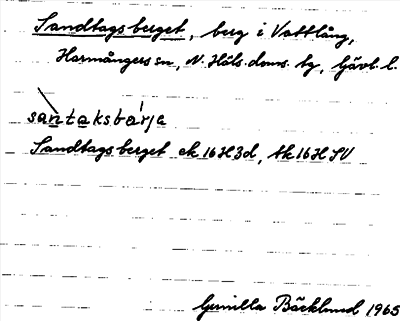 Sandtagsberget, berg i Vattlång,
Harmångers sn, N. Häls. doms. tg, Gävl. l.
santaksbärje
Sandtagsberget ek 16H3d, tk 16H SV
Gunilla Bäcklund 1965